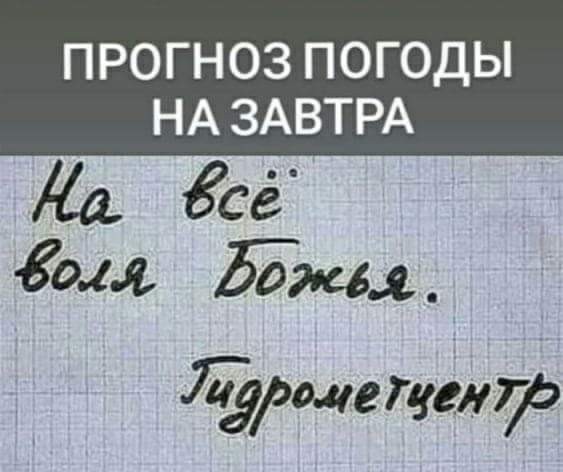 ПРОГНОЗ ПОГОДЫ
НА ЗАВТРА
На всё
воля Божья.
Гидрометцентр